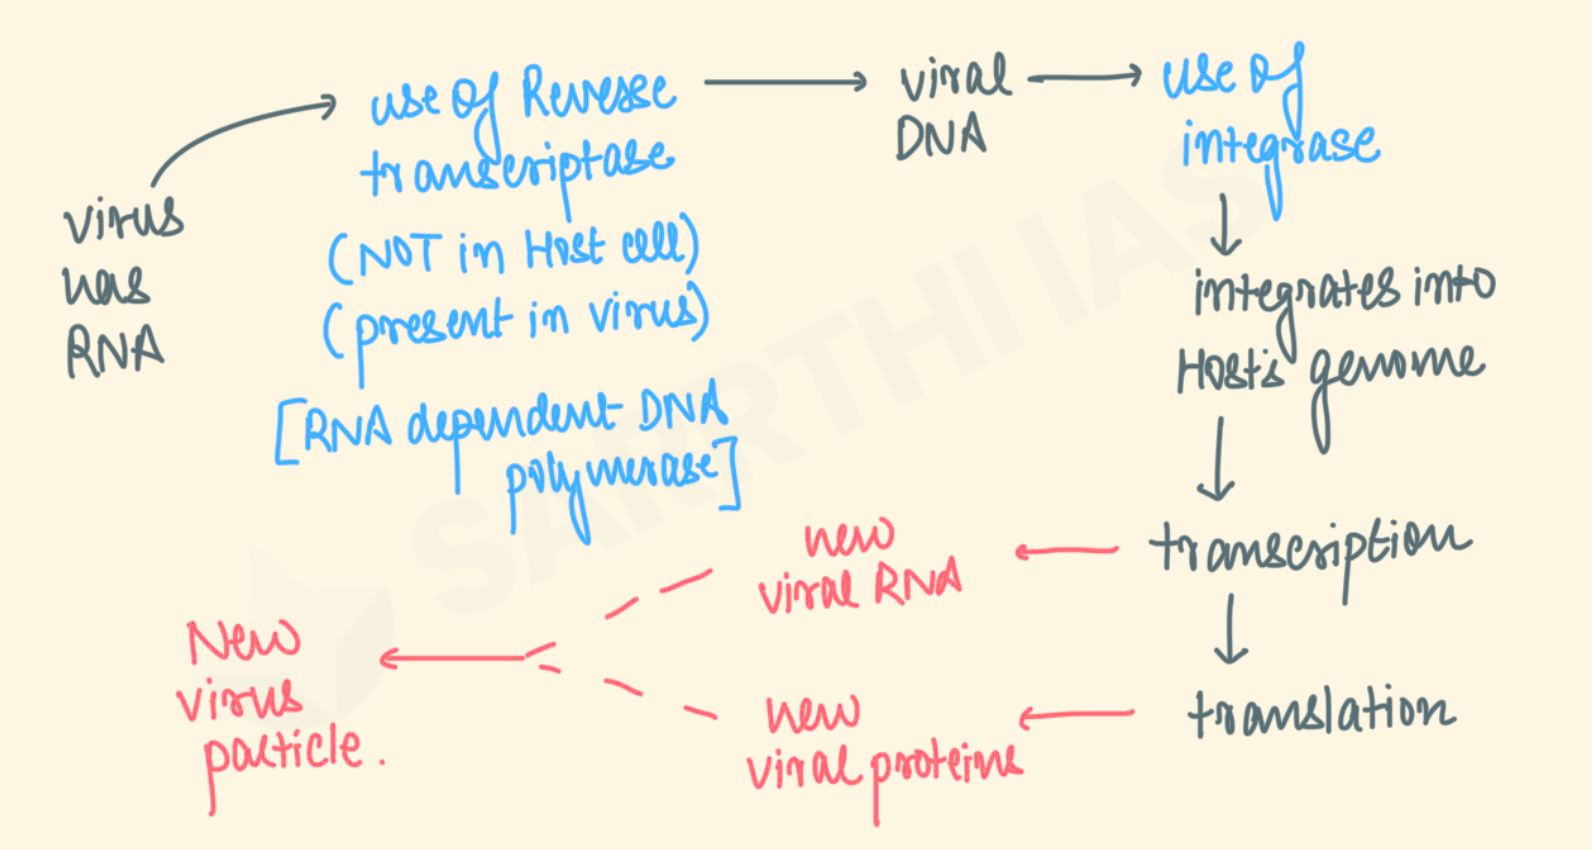 virus
has
RNA
use of Reverse
transcriptase
(NOT in Host cell)
(present in virus)
[RNA dependent DNA
polymerase]
viral
DNA
use of
integrase
integrates into
Host's genome
transcription
translation
new
viral RNA
new
viral proteins
New
virus
particle.
SARRTHI IAS